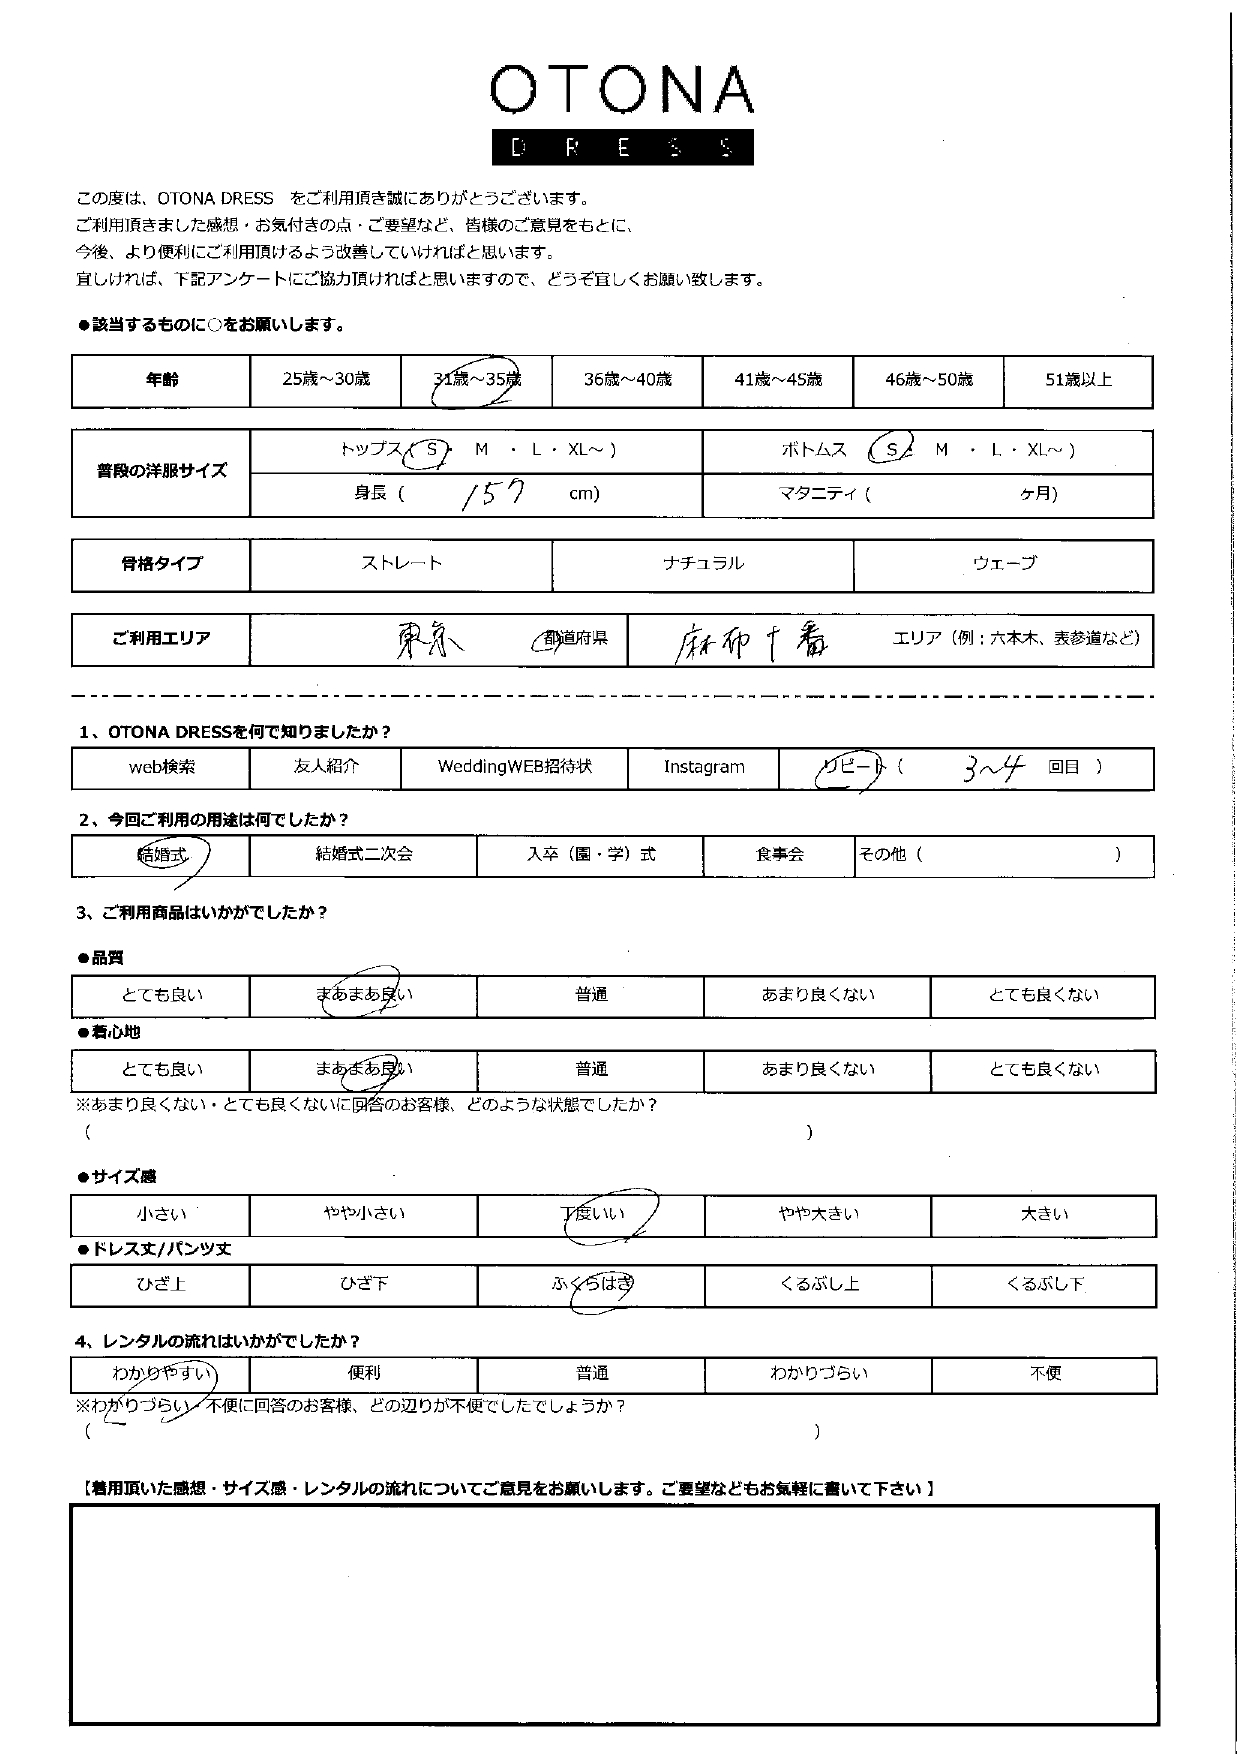 OTONA
DRESS
この度は、OTONA DRESS をご利用頂き誠にありがとうございます。
ご利用頂きました感想・お気付きの点・ご要望など、皆様のご意見をもとに、
今後、より便利にご利用頂けるよう改善していければと思います。
宜しければ、下記アンケートにご協力頂ければと思いますので、どうぞ宜しくお願い致します。
●該当するものに○をお願いします。
年齢 25歳～30歳 31歳～35歳 36歳～40歳 41歳～45歳 46歳～50歳 51歳以上
普段の洋服サイズ トップス( S ・ M ・ L ・ XL～ ) ボトムス ( S ・ M ・ L ・ XL～ )
身長 ( 157 cm) マタニティ ( ヶ月)
骨格タイプ ストレート ナチュラル ウェーブ
ご利用エリア 東京 都道府県 麻布十番 エリア（例：六本木、表参道など）
1、OTONA DRESSを何で知りましたか？
web検索 友人紹介 WeddingWEB招待状 Instagram リピート ( 3～4 回目 )
2、今回ご利用の用途は何でしたか？
結婚式 結婚式二次会 入卒（園・学）式 食事会 その他 ( )
3、ご利用商品はいかがでしたか？
●品質
とても良い まあまあ良い 普通 あまり良くない とても良くない
●着心地
とても良い まあまあ良い 普通 あまり良くない とても良くない
※あまり良くない・とても良くないに回答のお客様、どのような状態でしたか？
( )
●サイズ感
小さい やや小さい 丁度いい やや大きい 大きい
●ドレス丈/パンツ丈
ひざ上 ひざ下 ふくらはぎ くるぶし上 くるぶし下
4、レンタルの流れはいかがでしたか？
わかりやすい 便利 普通 わかりづらい 不便
※わかりづらい・不便に回答のお客様、どの辺りが不便でしたでしょうか？
( )
【着用頂いた感想・サイズ感・レンタルの流れについてご意見をお願いします。ご要望などもお気軽に書いて下さい】